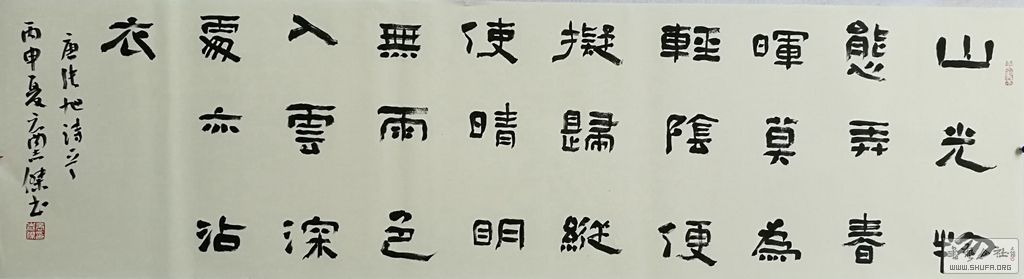 山光物
態弄春
暉莫為
輕陰便
擬歸縱
使晴明
無雨色
入雲深
處亦沾
衣
唐張旭詩
丙申夏傑书
WWW.SHUFA.ORG